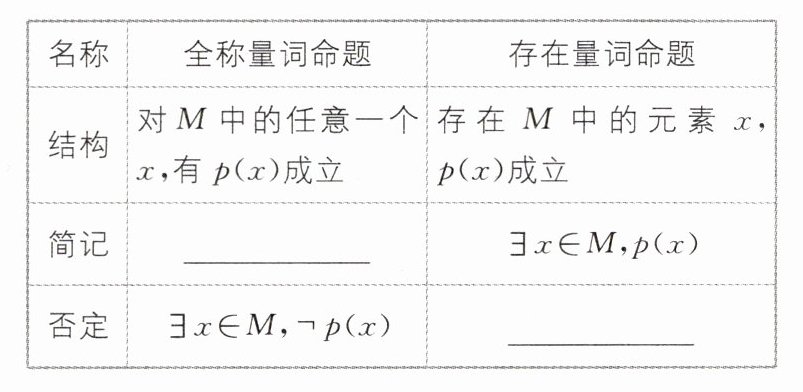 名称 全称量词命题 存在量词命题
结构 对 M 中的任意一个 x,有 p(x)成立 存在 M 中的元素 x, p(x)成立
简记 ________ ∃x∈M,p(x)
否定 ∃x∈M,¬p(x) ________